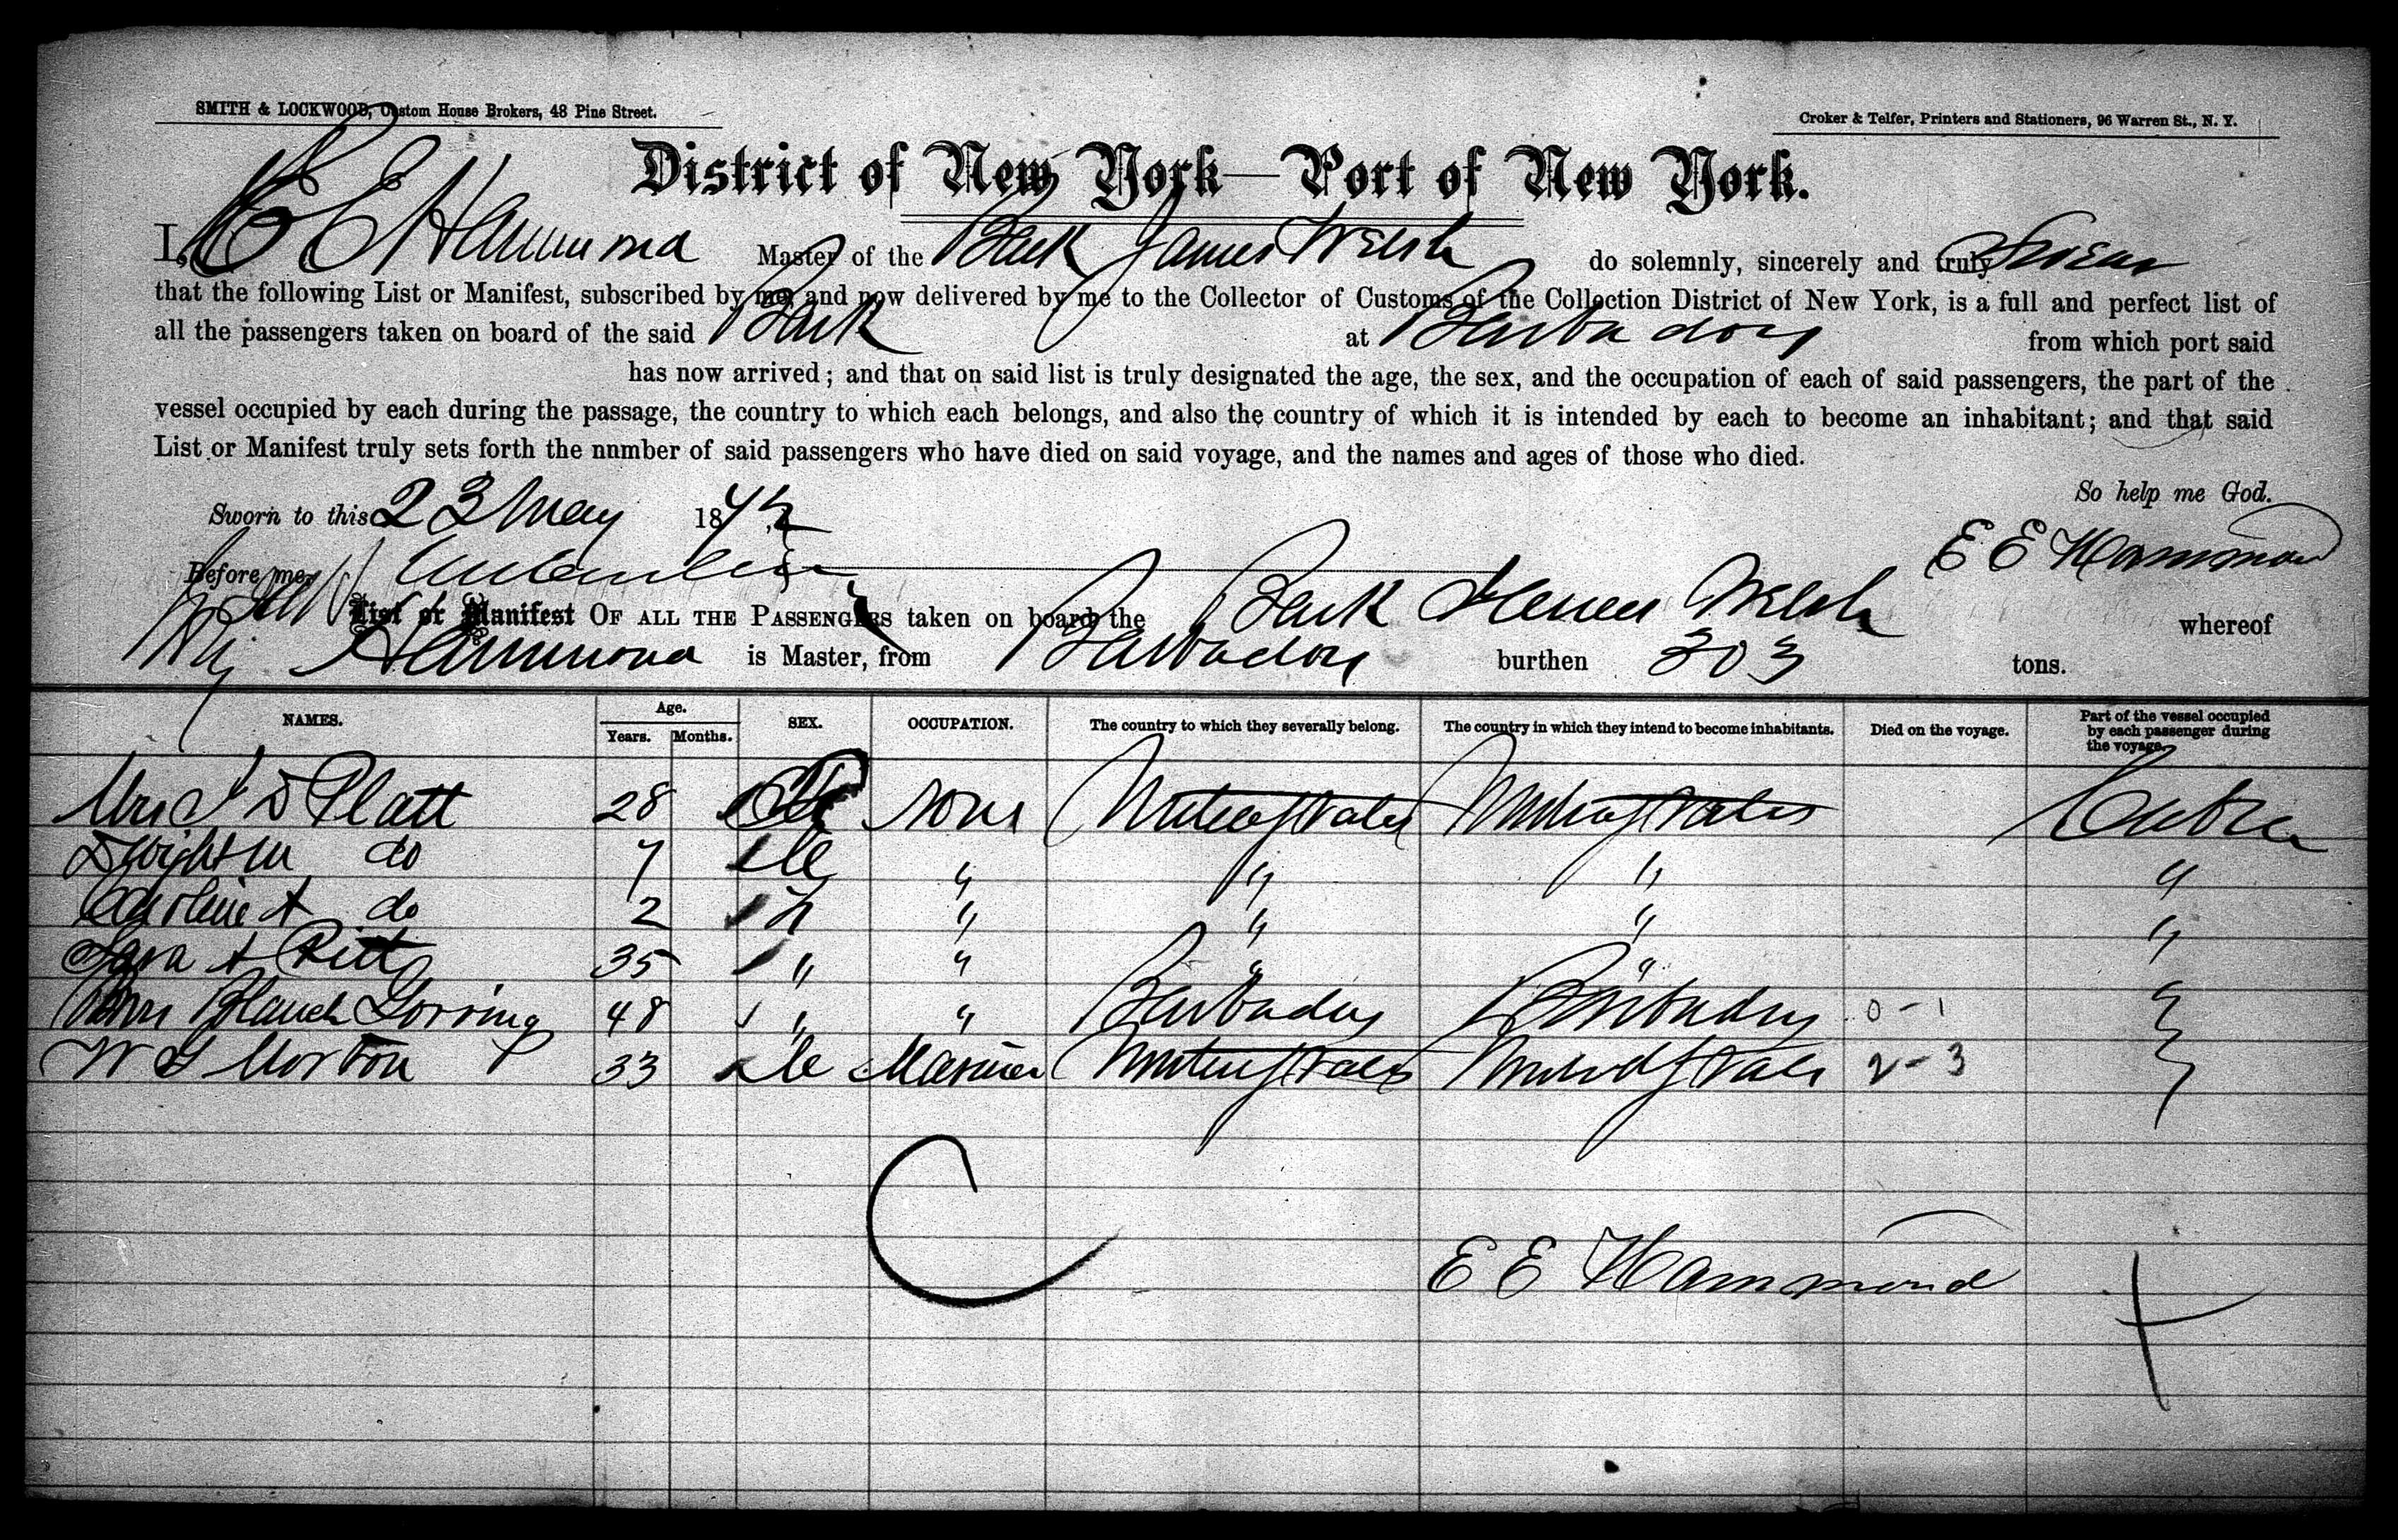 SMITH & LOCKWOOD, Custom House Brokers, 48 Pine Street.
Croker & Telfer, Printers and Stationers, 96 Warren St., N. Y.
District of New York—Port of New York.
I, E E Hammond Master of the Bark James Welsh do solemnly, sincerely and truly Swear
that the following List or Manifest, subscribed by me, and now delivered by me to the Collector of Customs of the Collection District of New York, is a full and perfect list of
all the passengers taken on board of the said Bark at Barbados from which port said
has now arrived; and that on said list is truly designated the age, the sex, and the occupation of each of said passengers, the part of the
vessel occupied by each during the passage, the country to which each belongs, and also the country of which it is intended by each to become an inhabitant; and that said
List or Manifest truly sets forth the nnmber of said passengers who have died on said voyage, and the names and ages of those who died.
So help me God.
Sworn to this 23 May 187
E E Hammond
Before me,
List or Manifest OF ALL THE PASSENGERS taken on board the Bark James Welsh whereof
Hammond is Master, from Barbados burthen 303 tons.
NAMES. Age. Years. Months. SEX. OCCUPATION. The country to which they severally belong. The country in which they intend to become inhabitants. Died on the voyage. Part of the vessel occupied by each passenger during the voyage.
Mrs J D Platt 28 None United States United States Cabin
Dwight M do 7 M " " " "
Caroline A do 2 F " " " "
Sara A Pitt 35 " " " " "
Blanch Gorring 48 " " Barbados Barbados 0-1 "
W G Morton 33 M Mariner United States United States 2-3 "
C
E E Hammond